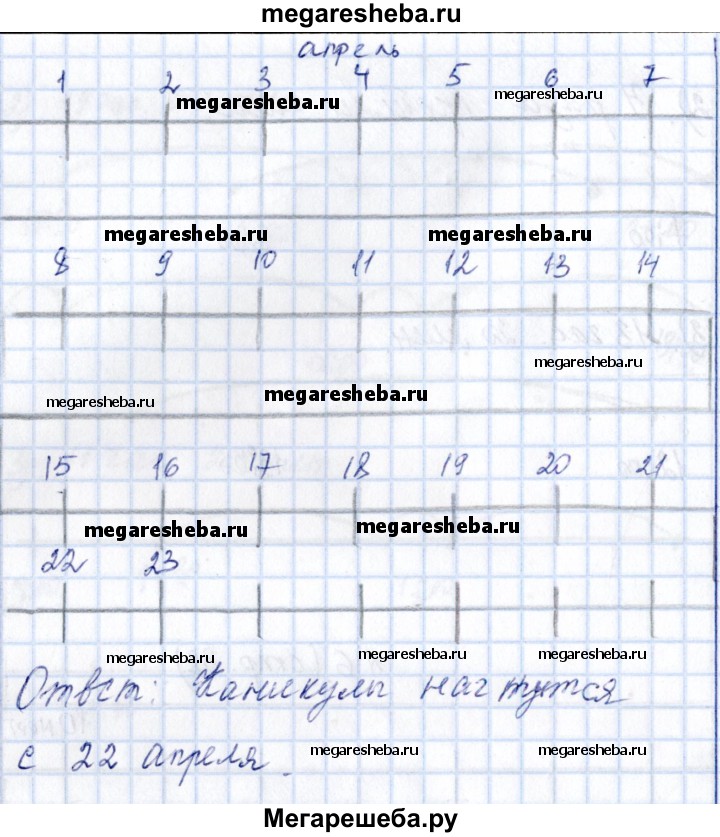 megaresheba.ru
апрель
1 2 3 4 5 6 7
megaresheba.ru megaresheba.ru
megaresheba.ru megaresheba.ru
8 9 10 11 12 13 14
megaresheba.ru
megaresheba.ru megaresheba.ru
15 16 17 18 19 20 21
megaresheba.ru megaresheba.ru
22 23
megaresheba.ru megaresheba.ru megaresheba.ru
Ответ: Каникулы начнутся
с 22 апреля.
megaresheba.ru megaresheba.ru
Мегарешеба.ру